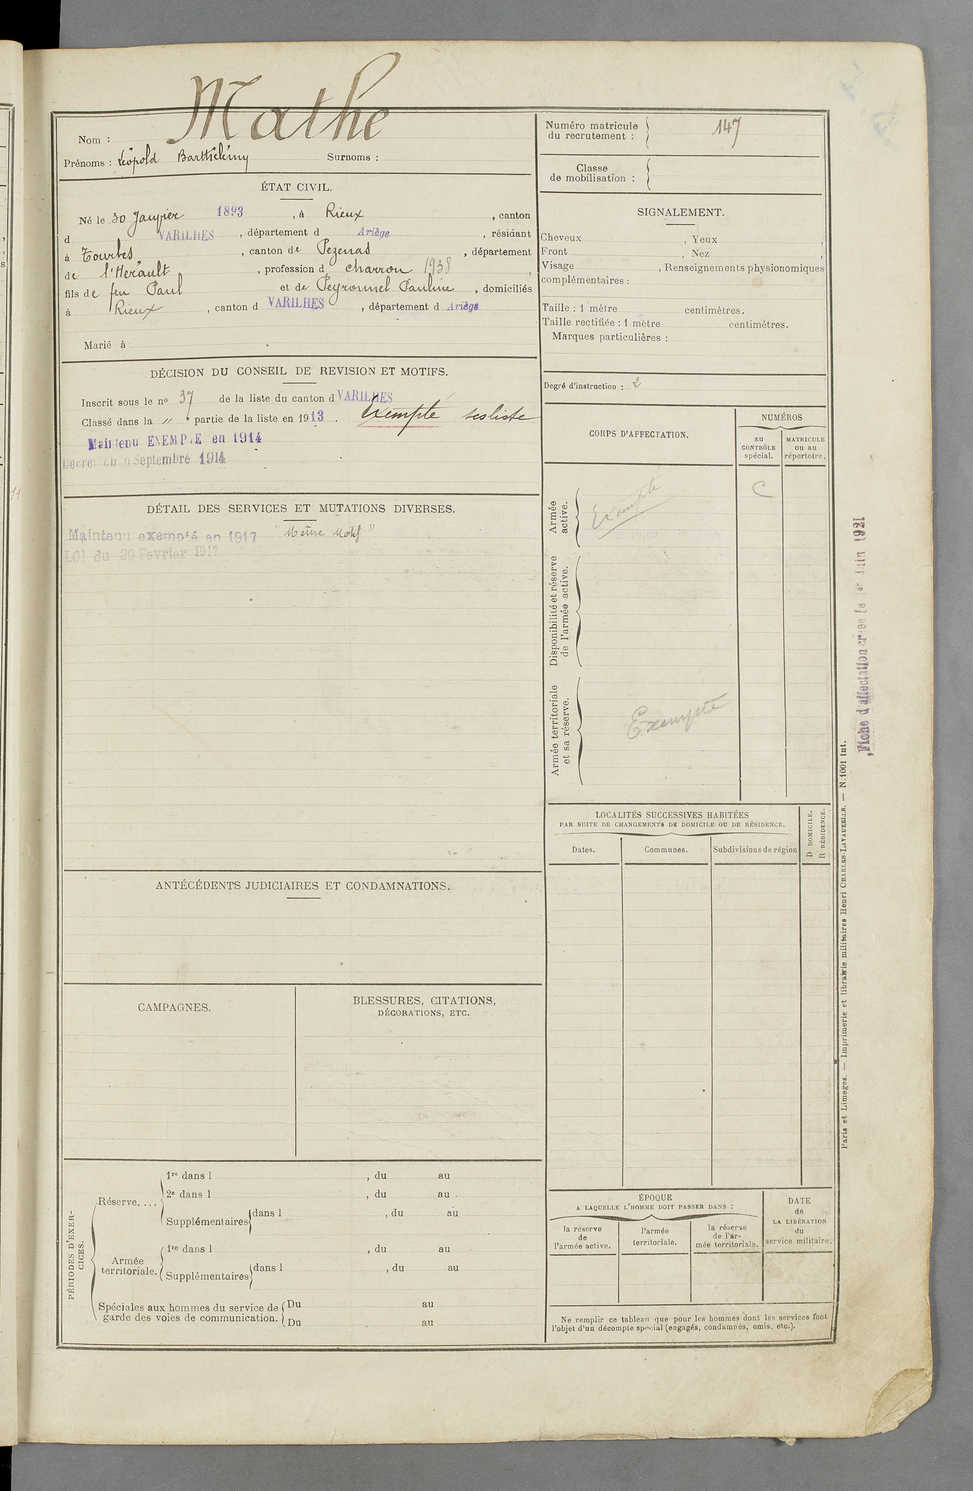 Mathe
Nom :
Prénoms : Léopold Barthélémy Surnoms :
ÉTAT CIVIL.
Né le 30 Janvier 1893, à Rieux, canton
d VARILHES, département d Ariège, résidant
à Tourbes, canton de Pezenas, département
de l'Hérault, profession d charron 1938,
fils de feu Paul et de Peyronnel Pauline, domiciliés
à Rieux, canton d VARILHES, département d Ariège
Marié à
DÉCISION DU CONSEIL DE REVISION ET MOTIFS.
Inscrit sous le no 37 de la liste du canton d VARILHES
Classé dans la " partie de la liste en 1913. Exempté
Maintenu EXEMPTE en 1914
Décret du 9 Septembre 1914
DÉTAIL DES SERVICES ET MUTATIONS DIVERSES.
Maintenu exempté en 1917 "Même Motif"
Loi du 20 Février 1917
ANTÉCÉDENTS JUDICIAIRES ET CONDAMNATIONS.
CAMPAGNES.
BLESSURES, CITATIONS,
DÉCORATIONS, ETC.
PÉRIODES D'EXER-
CICES.
Réserve....
1re dans l , du au
2e dans l , du au
Supplémentaires dans l , du au
Armée
territoriale.
1re dans l , du au
Supplémentaires dans l , du au
Spéciales aux hommes du service de
garde des voies de communication.
Du au
Du au
Numéro matricule
du recrutement : 147
Classe
de mobilisation :
SIGNALEMENT.
Cheveux , Yeux ,
Front , Nez ,
Visage , Renseignements physionomiques
complémentaires :
Taille : 1 mètre centimètres.
Taille rectifiée : 1 mètre centimètres.
Marques particulières :
Degré d'instruction : 2
CORPS D'AFFECTATION.
NUMÉROS
au
CONTRÔLE
spécial.
MATRICULE
ou au
répertoire.
Armée
active.
Exempté
C
Disponibilité et réserve
de l'armée active.
Armée territoriale
et sa réserve.
Exempté
LOCALITÉS SUCCESSIVES HABITÉES
PAR SUITE DE CHANGEMENTS DE DOMICILE OU DE RÉSIDENCE.
Dates.
Communes.
Subdivisions de région
D DOMICILE.
R RÉSIDENCE.
ÉPOQUE
A LAQUELLE L'HOMME DOIT PASSER DANS :
la réserve
de
l'armée active.
l'armée
territoriale.
la réserve
de l'ar-
mée territoriale.
DATE
de
LA LIBÉRATION
du
service militaire.
Ne remplir ce tableau que pour les hommes dont les services font
l'objet d'un décompte spécial (engagés, condamnés, omis, etc.).
Paris et Limoges. — Imprimerie et librairie militaires Henri CHARLES-LAVAUZELLE. — N. 1001 Int.
Fiche d'affectation créée le 1er Juin 1921